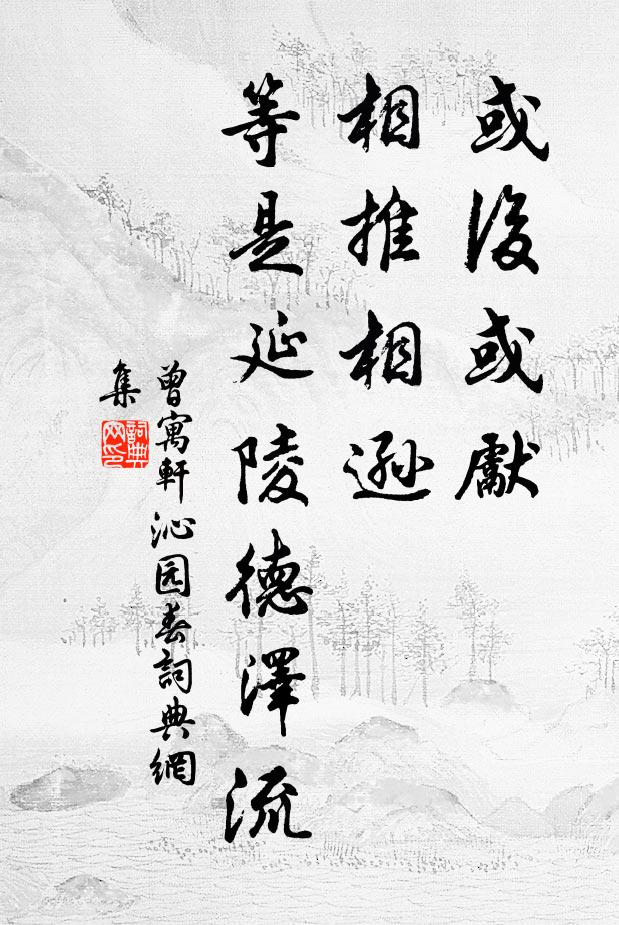 或後或獻
相推相遜
等是延陵德澤流
曾寓軒沁园春詞典網
集
詞典
网印